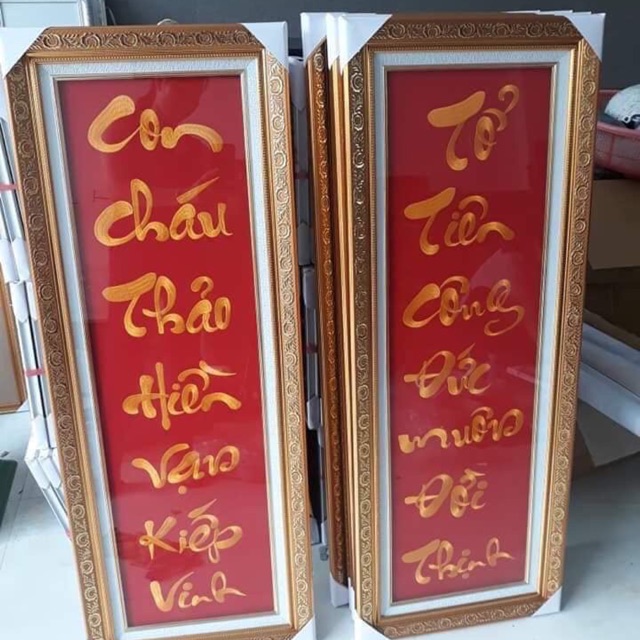 Con
Cháu
Thảo
Hiền
Vạn
Kiếp
Vinh
Tổ
Tiên
Công
Đức
muôn
Đời
Thịnh